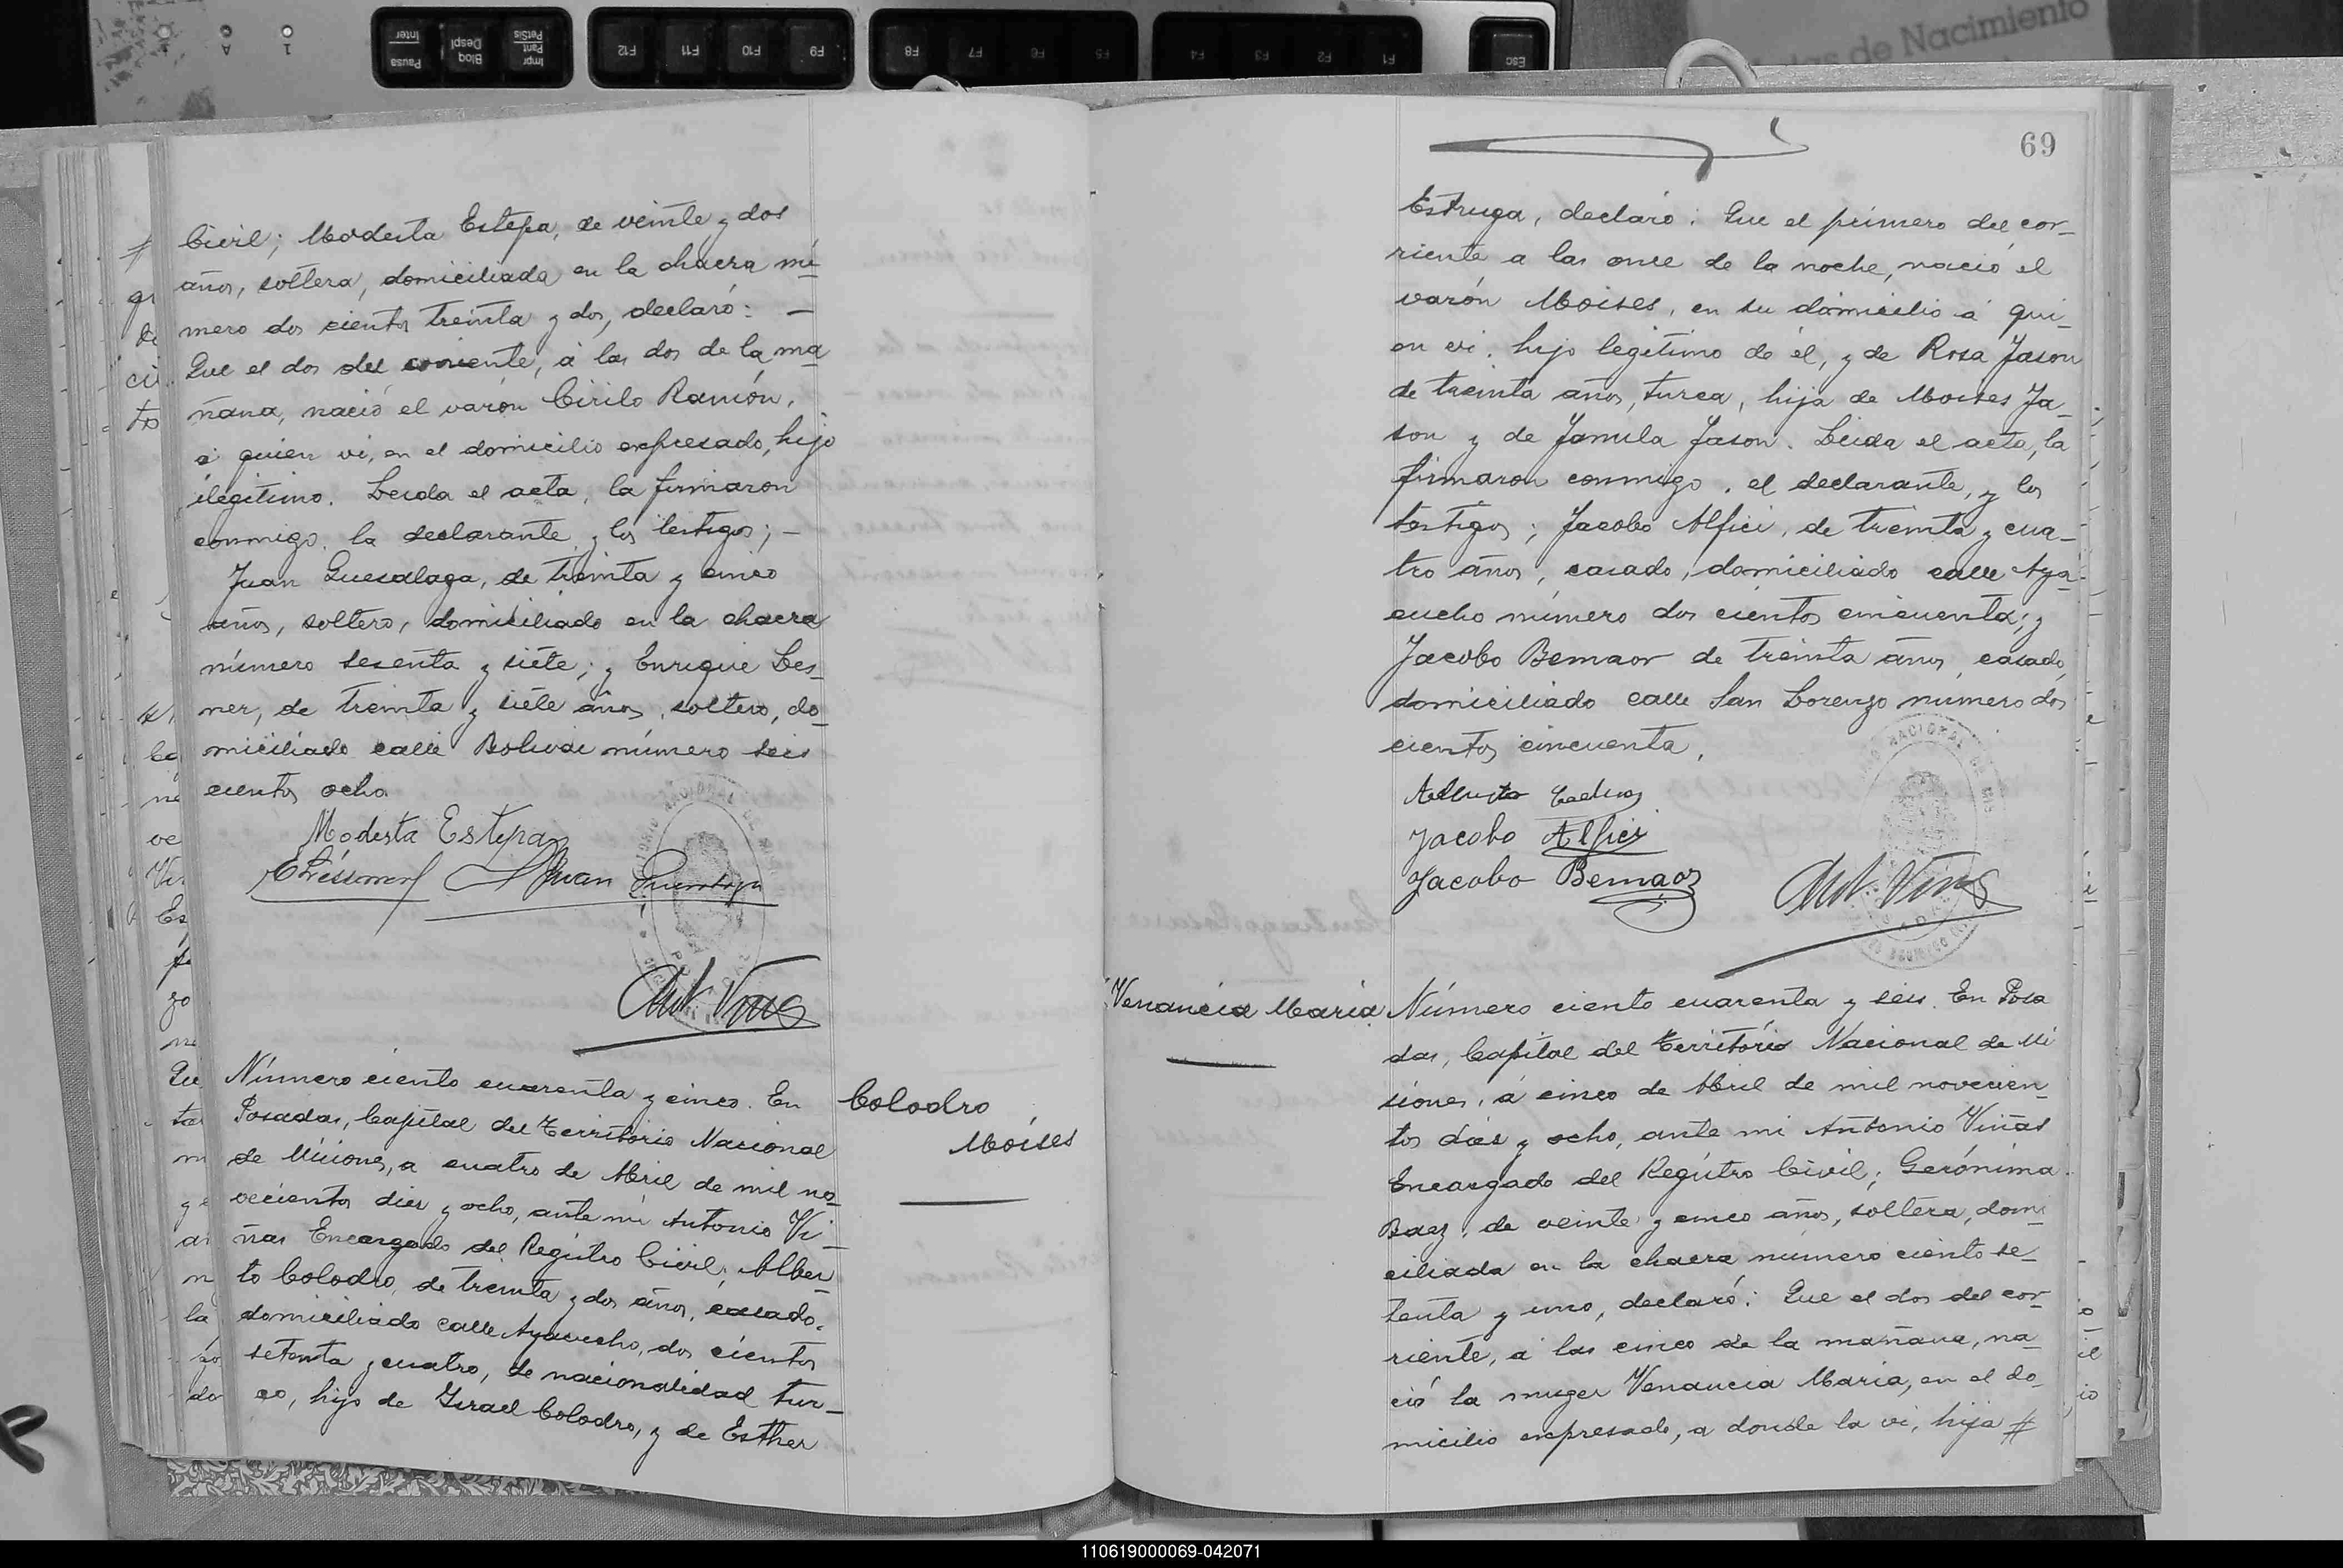 Inter
Pausa
Despl
Bloq
PetSis
Pant
Impr
F12
F11
F10
F9
F8
F7
F6
F5
F4
F3
F2
F1
Esc
de Nacimiento
Civil; Modesta Estepa, de veinte y dos
años, soltera, domiciliada en la chacra nú
mero dos cientos treinta y dos, declaró: —
Que el dos del corriente, á las dos de la ma
ñana, nació el varón Cirilo Ramón,
á quien vi, en el domicilio expresado, hijo
ilegítimo. Leida el acta, la firmaron
conmigo, la declarante y los testigos; —
Juan Guesalaga, de treinta y cinco
años, soltero, domiciliado en la chacra
número sesenta y siete; y Enrique Les_
ner, de treinta y siete años, soltero, do_
miciliado calle Bolivar número seis
cientos ocho.
Modesta Estepa
Juan
Ant. Viñas
Número ciento cuarenta y cinco. En
Posadas, Capital del Territorio Nacional
de Misiones, a cuatro de Abril de mil no_
vecientos diez y ocho, ante mi Antonio Vi_
ñas Encargado del Registro Civil; Alber
to Colodro, de treinta y dos años, casado,
domiciliado calle Ayacucho, dos cientos
setenta y cuatro, de nacionalidad tur_
co, hijo de Israel Colodro, y de Esther
Colodro
Moises
69
Estruga, declaró: Que el primero del cor_
riente a las once de la noche, nació el
varón Moises, en su domicilio á qui_
en vi, hijo legítimo de él, y de Rosa Jason
de treinta años, turca, hija de Moises Ja_
son y de Jamila Jason. Leida el acta, la
firmaron conmigo, el declarante, y los
testigos; Jacobo Alfici, de treinta y cua_
tro años, casado, domiciliado calle Aya_
cucho número dos cientos cincuenta; y
Jacobo Bemaor de treinta años, casado,
domiciliado calle San Lorenzo número dos
cientos cincuenta.
Jacobo Alfici
Jacobo Bemaor
Ant. Viñas
Venancia Maria
Número ciento cuarenta y seis. En Posa
das, Capital del Territorio Nacional de Mi
siones, á cinco de Abril de mil novecien_
tos diez y ocho, ante mi Antonio Viñas
Encargado del Registro Civil; Gerónima
Baez, de veinte y cinco años, soltera, domi_
ciliada en la chacra número ciento se_
tenta y uno, declaró: Que el dos del cor_
riente, á las cinco de la mañana, na_
ció la muger Venancia Maria, en el do_
micilio expresado, a donde la vi, hija #
110619000069-042071